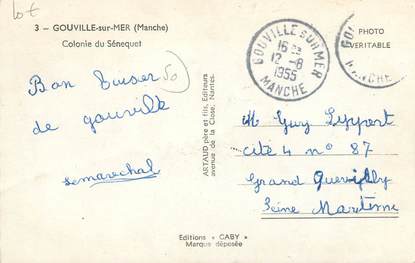 lot
3 - GOUVILLE-sur-MER (Manche)
Colonie du Sénequet
Bon Baiser
50
de gouville
lemarechal
ARTAUD père et fils, Editeurs
avenue de la Close, Nantes.
GOUVILLE SUR MER
16 H
12 - 8
1955
MANCHE
PHOTO
VERITABLE
GOU
MANCHE
M Guy Lippert
cité 4 n° 87
Grand Quevilly
Seine Maritime
Editions "GABY"
Marque déposée